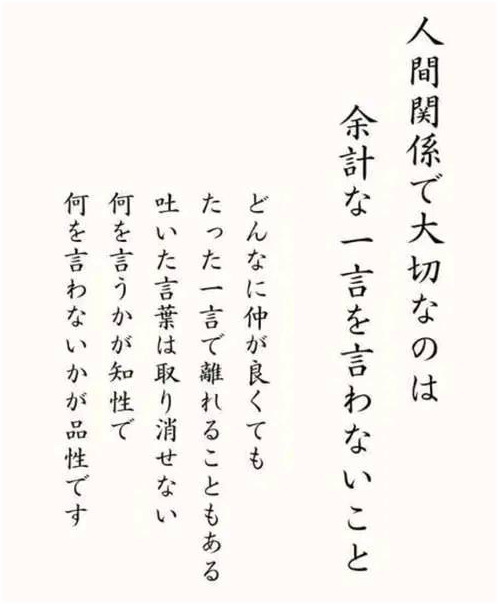 人間関係で大切なのは
余計な一言を言わないこと
どんなに仲が良くても
たった一言で離れることもある
吐いた言葉は取り消せない
何を言うかが知性で
何を言わないかが品性です